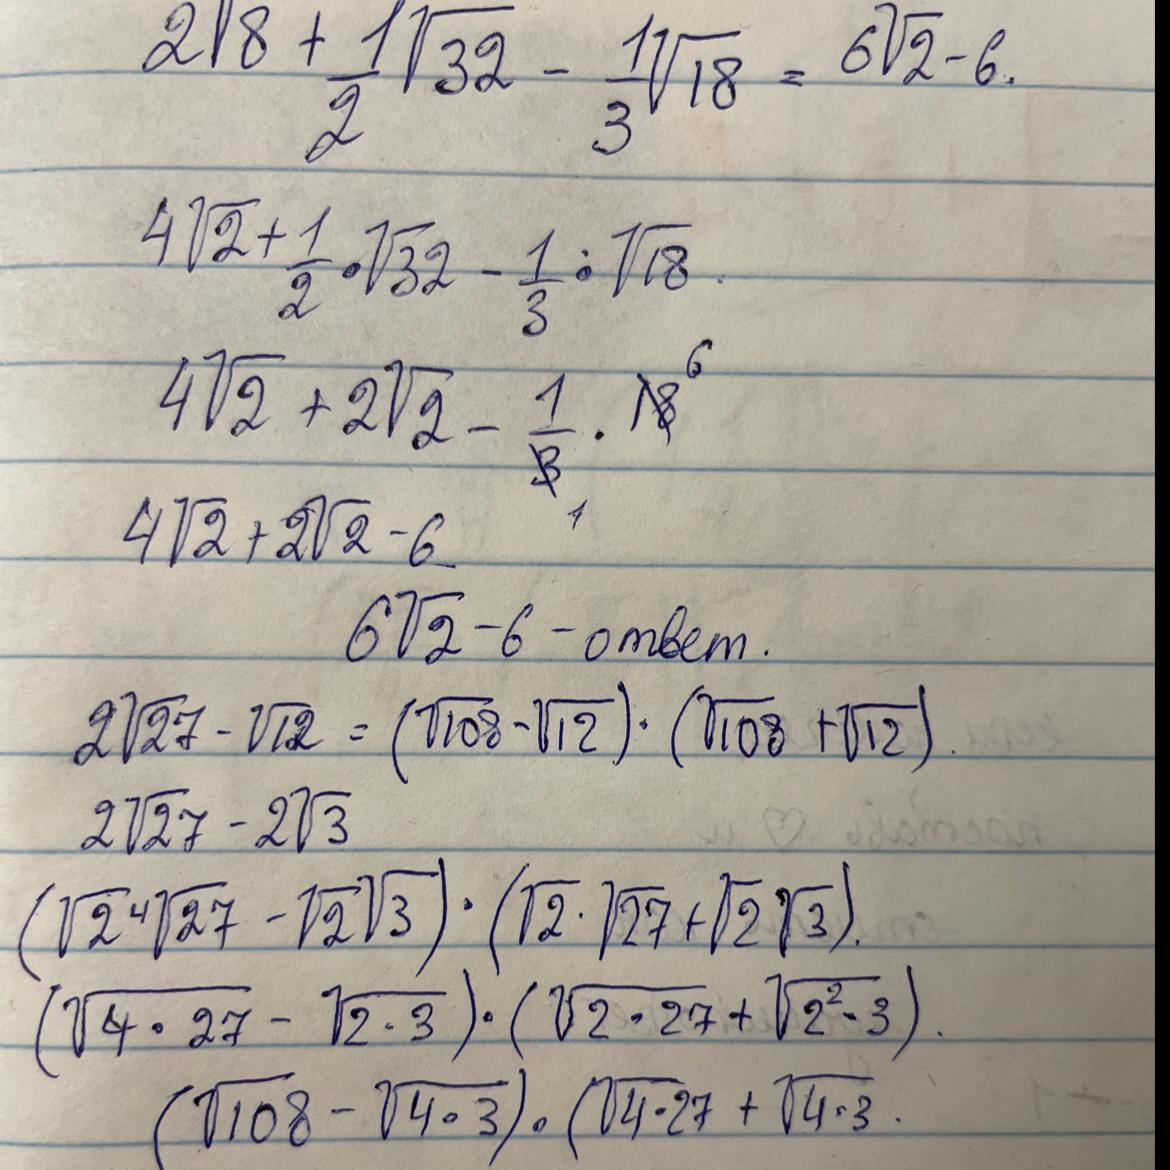 2√8 + 1/2 √32 - 1/3 √18 = 6√2 - 6.
4√2 + 1/2 • √32 - 1/3 : √18.
4√2 + 2√2 - 1/3 · 18 6
1
4√2 + 2√2 - 6
6√2 - 6 - ответ.
2√27 - √12 = (√108 - √12) · (√108 + √12).
2√27 - 2√3
(√2⁴√27 - √2√3) · (√2 · √27 + √2√3).
(√4·27 - √2·3) · (√2·27 + √2²·3).
(√108 - √4·3) · (√4·27 + √4·3.